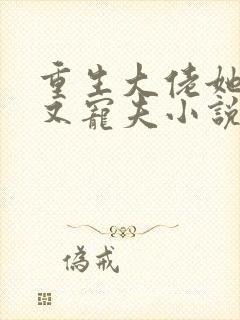 重生大佬她
又寵夫小說
偽戒